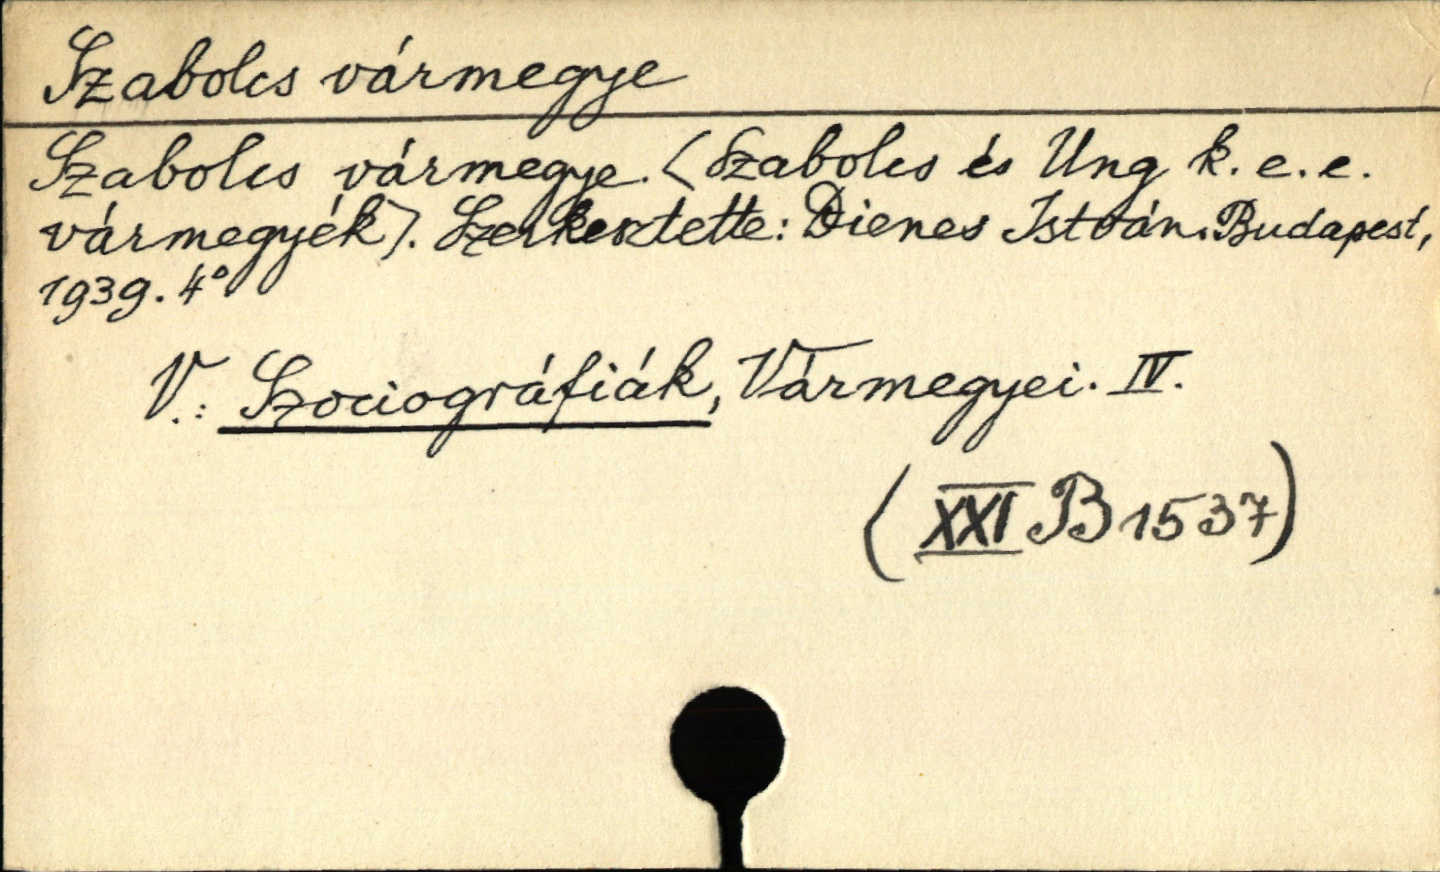 Szabolcs vármegye
Szabolcs vármegye. (Szabolcs és Ung k. e. e.
vármegyék). Szerkesztette: Dienes István. Budapest,
1939. 4°
V.: Szociográfiák, Vármegyei. IV.
(XXI B 1537)